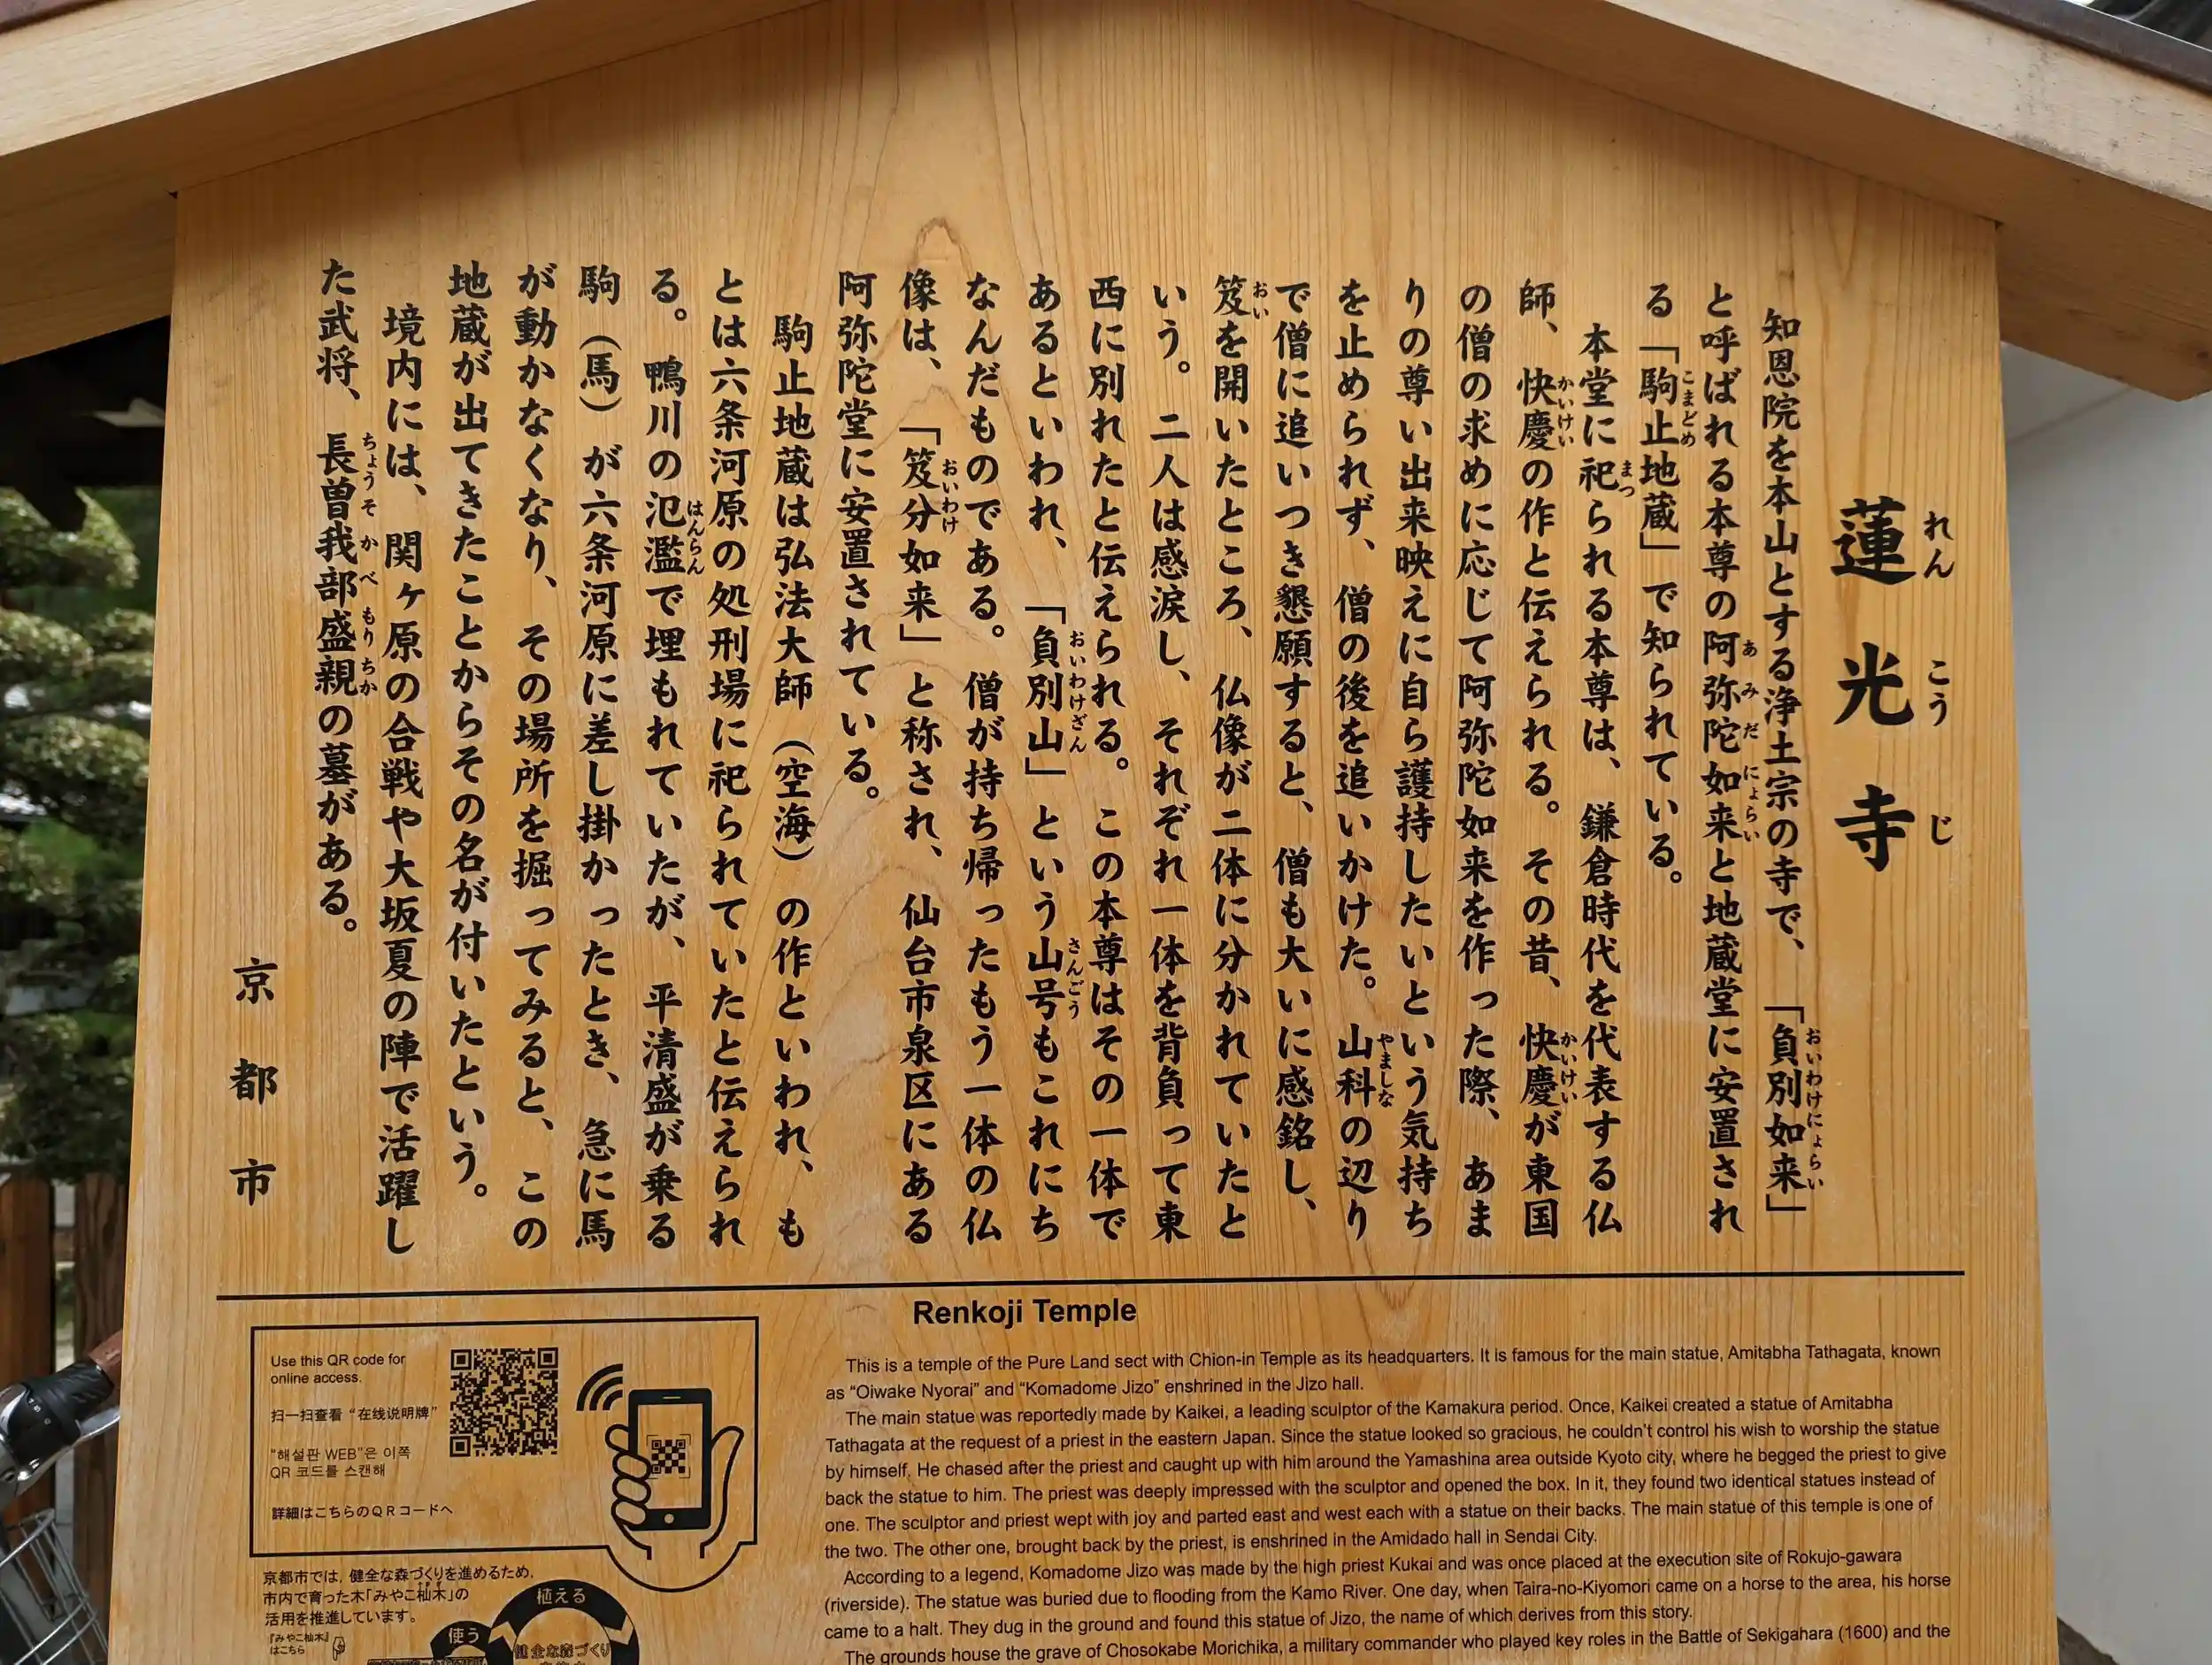 蓮光寺
れんこうじ
知恩院を本山とする浄土宗の寺で、「負別如来」
おいわけにょらい
と呼ばれる本尊の阿弥陀如来と地蔵堂に安置され
あみだにょらい
る「駒止地蔵」で知られている。
こまどめ
本堂に祀られる本尊は、鎌倉時代を代表する仏
まつ
師、快慶の作と伝えられる。その昔、快慶が東国
かいけい
かいけい
の僧の求めに応じて阿弥陀如来を作った際、あま
りの尊い出来映えに自ら護持したいという気持ち
を止められず、僧の後を追いかけた。山科の辺り
やましな
で僧に追いつき懇願すると、僧も大いに感銘し、
笈を開いたところ、仏像が二体に分かれていたと
おい
いう。二人は感涙し、それぞれ一体を背負って東
西に別れたと伝えられる。この本尊はその一体で
あるといわれ、「負別山」という山号もこれにち
おいわけざん
さんごう
なんだものである。僧が持ち帰ったもう一体の仏
像は、「笈分如来」と称され、仙台市泉区にある
おいわけ
阿弥陀堂に安置されている。
駒止地蔵は弘法大師（空海）の作といわれ、も
とは六条河原の処刑場に祀られていたと伝えられ
る。鴨川の氾濫で埋もれていたが、平清盛が乗る
はんらん
駒（馬）が六条河原に差し掛かったとき、急に馬
が動かなくなり、その場所を掘ってみると、この
地蔵が出てきたことからその名が付いたという。
境内には、関ヶ原の合戦や大坂夏の陣で活躍し
た武将、長曽我部盛親の墓がある。
ちょうそかべもりちか
京都市
Renkoji Temple
This is a temple of the Pure Land sect with Chion-in Temple as its headquarters. It is famous for the main statue, Amitabha Tathagata, known
as “Oiwake Nyorai” and “Komadome Jizo” enshrined in the Jizo hall.
The main statue was reportedly made by Kaikei, a leading sculptor of the Kamakura period. Once, Kaikei created a statue of Amitabha
Tathagata at the request of a priest in the eastern Japan. Since the statue looked so gracious, he couldn't control his wish to worship the statue
by himself. He chased after the priest and caught up with him around the Yamashina area outside Kyoto city, where he begged the priest to give
back the statue to him. The priest was deeply impressed with the sculptor and opened the box. In it, they found two identical statues instead of
one. The sculptor and priest wept with joy and parted east and west each with a statue on their backs. The main statue of this temple is one of
the two. The other one, brought back by the priest, is enshrined in the Amidado hall in Sendai City.
According to a legend, Komadome Jizo was made by the high priest Kukai and was once placed at the execution site of Rokujo-gawara
(riverside). The statue was buried due to flooding from the Kamo River. One day, when Taira-no-Kiyomori came on a horse to the area, his horse
came to a halt. They dug in the ground and found this statue of Jizo, the name of which derives from this story.
The grounds house the grave of Chosokabe Morichika, a military commander who played key roles in the Battle of Sekigahara (1600) and the
Use this QR code for
online access.
扫一扫查看 “在线说明牌”
“해설판 WEB”은 이쪽
QR 코드를 스캔해
詳細はこちらのＱＲコードへ
京都市では、健全な森づくりを進めるため、
市内で育った木「みやこ杣木」の
活用を推進しています。
『みやこ杣木』
はこちら
植える
使う
健全な森づくり